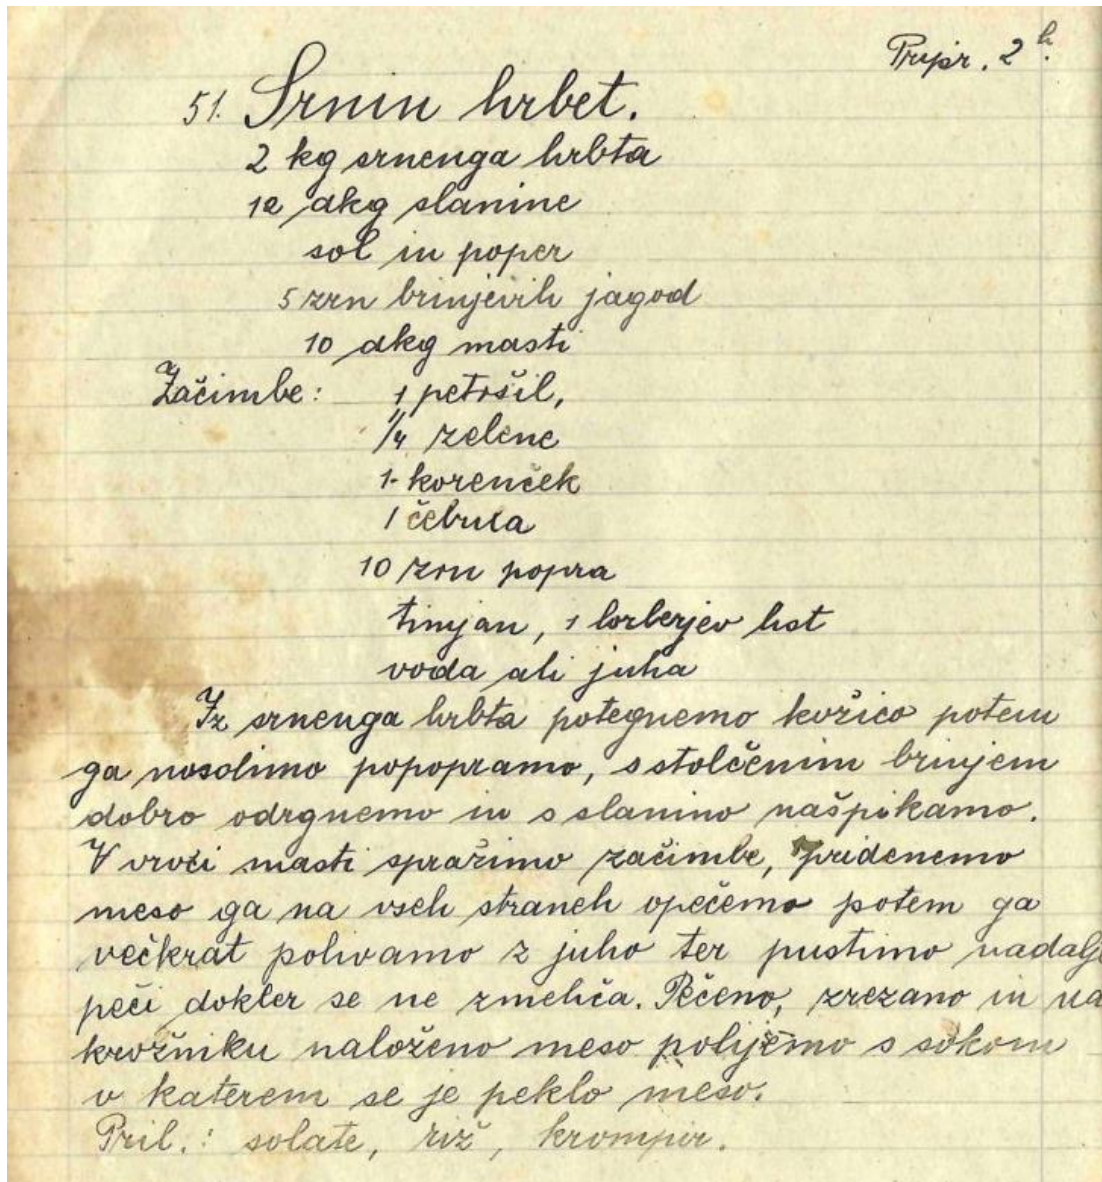 Pripr. 2 h.
51. Srnin hrbet.
2 kg srnenga hrbta
12 dkg slanine
sol in poper
5 zrn brinjevih jagod
10 dkg masti
Začimbe: 1 petršil,
1/4 zelene
1 korenček
1 čebula
10 zrn popra
timjan, 1 lorberjev list
voda ali juha
Iz srnenga hrbta potegnemo kožico potem
ga nasolimo popopramo, s stolčenim brinjem
dobro odrgnemo in s slanino našpikamo.
V vroči masti spražimo začimbe, pridenemo
meso ga na vseh straneh opečemo potem ga
večkrat polivamo z juho ter pustimo nadalje
peči dokler se ne zmehča. Pečeno, zrezano in na
krožniku naloženo meso polijemo s sokom
v katerem se je peklo meso.
Pril.: solate, riž, krompir.